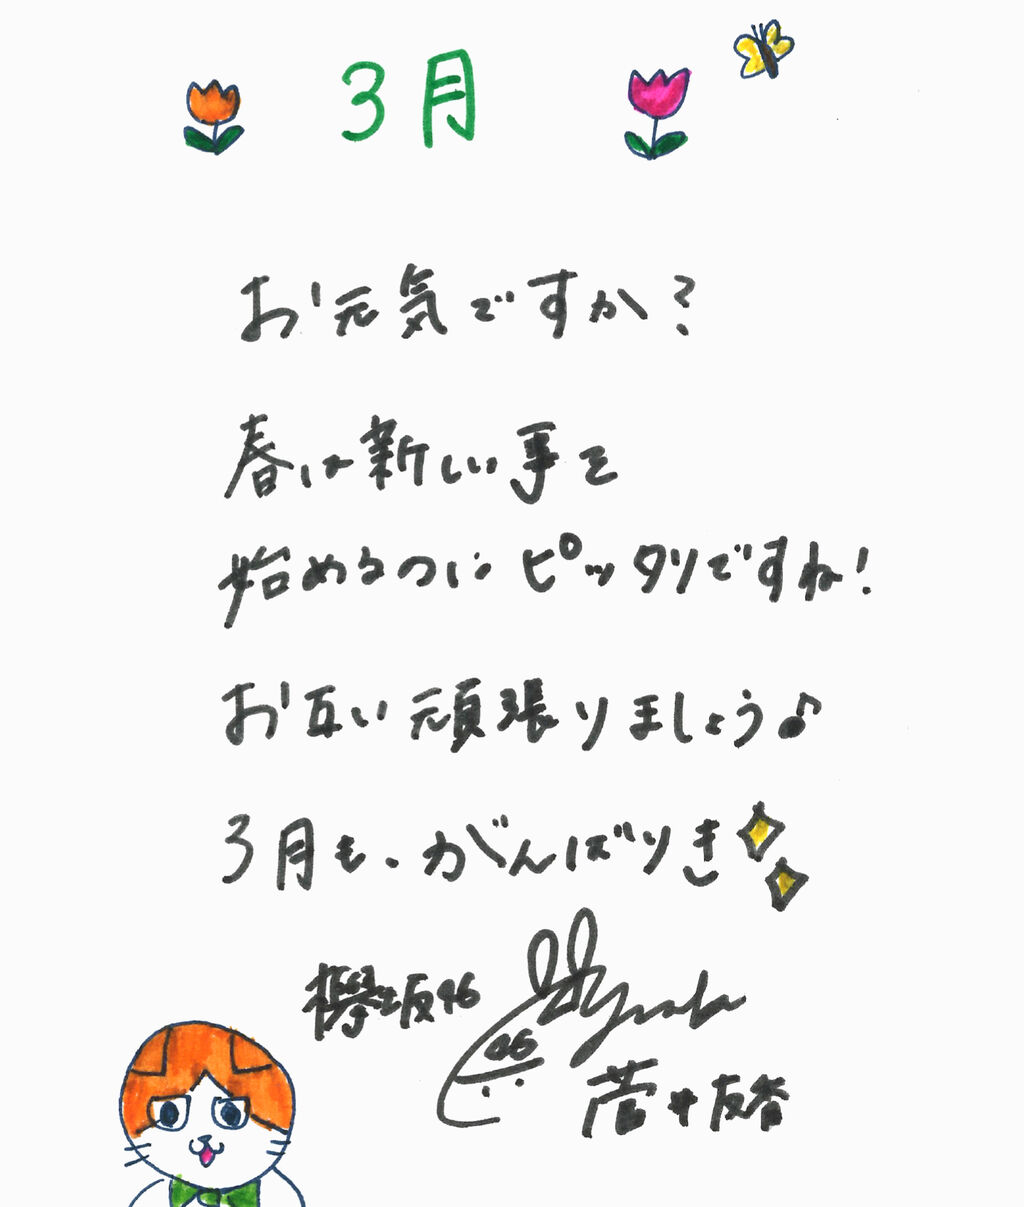 3月
お元気ですか？
春は新しい事を
始めるのに ピッタリですね！
お互い 頑張りましょう♪
3月も、がんばりき
欅坂46
46
菅井友香